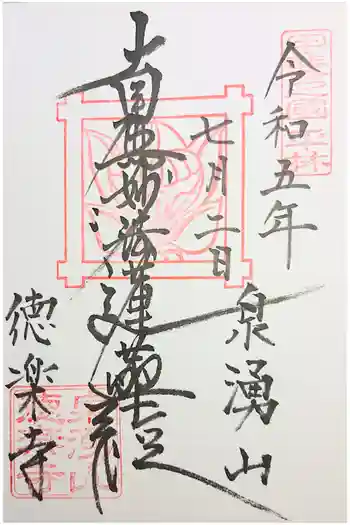 令和五年
七月二日
泉湧山
南無妙法蓮華経
徳楽寺